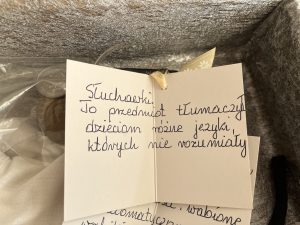 Słuchawki
To przedmiot tłumaczył
dzieciom różne języki,
których nie rozumiały
wabione